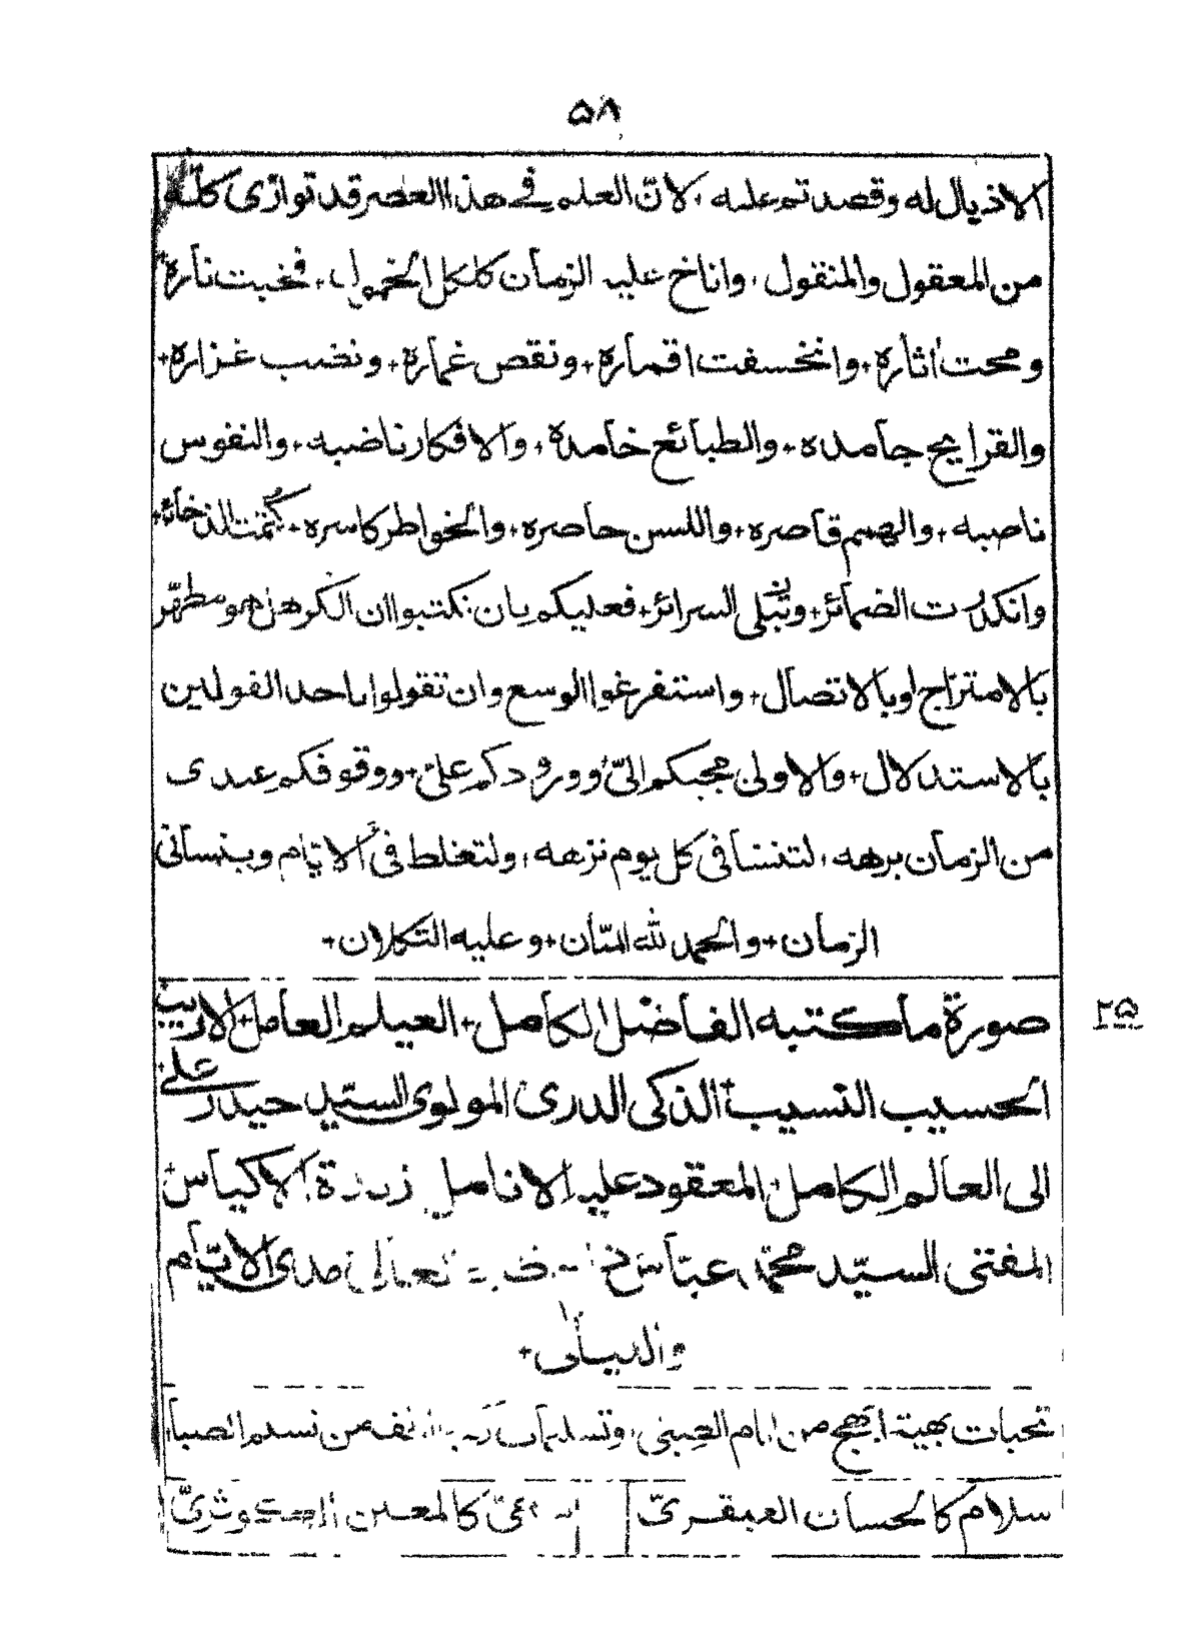 ٥٨
الاذيال له وقصدتم عليه، لانّ العلم في هذا العصر قد توارى كلّه
من المعقول والمنقول، واناخ عليه الزمان كلكل الخمول، فخبت ناره
ومحت اثاره + وانخسفت اقماره + ونقص غماره + ونضب غزاره +
والقرايح جامده + والطبائع خامدة، والافكار ناضبه + والنفوس
ناصبه + والهمم قاصره + واللسن حاصره + والخواطر كاسره +
وانكدرت الضمائر + وتبلى السرائر + فعليكم بان تكتبوا ان الكر هل هو مطهّر
بالامتزاج او بالاتصال + واستفرغوا الوسع وان تقولوا باحد القولين
بالاستدلال + والاولى مجيكم اليّ وورودكم عليّ + ووقوفكم عندى
من الزمان برهه، لتنشا في كل يوم نزهه، ولتغلط في الايام وينسانى
الزمان + والحمد لله المنّان + وعليه التكلان +
٢٥
صورة ما كتبه الفاضل الكامل + العيلم العامل + الاريب
الحسيب النسيب + الذكى الدرى المولوى السيّد حيدر على +
الى العالم الكامل المعقود عليه الانامل زبدة الاكياس +
المفتى السيّد محمّد عبّاس تعالى مدى الايّام
والليالى +
تحيات بهية ابهج من ايام الصبى، وتسليمات من نسيم الصبا
سلام كالحسان العبقرىّ كالمعين الكوثرىّ